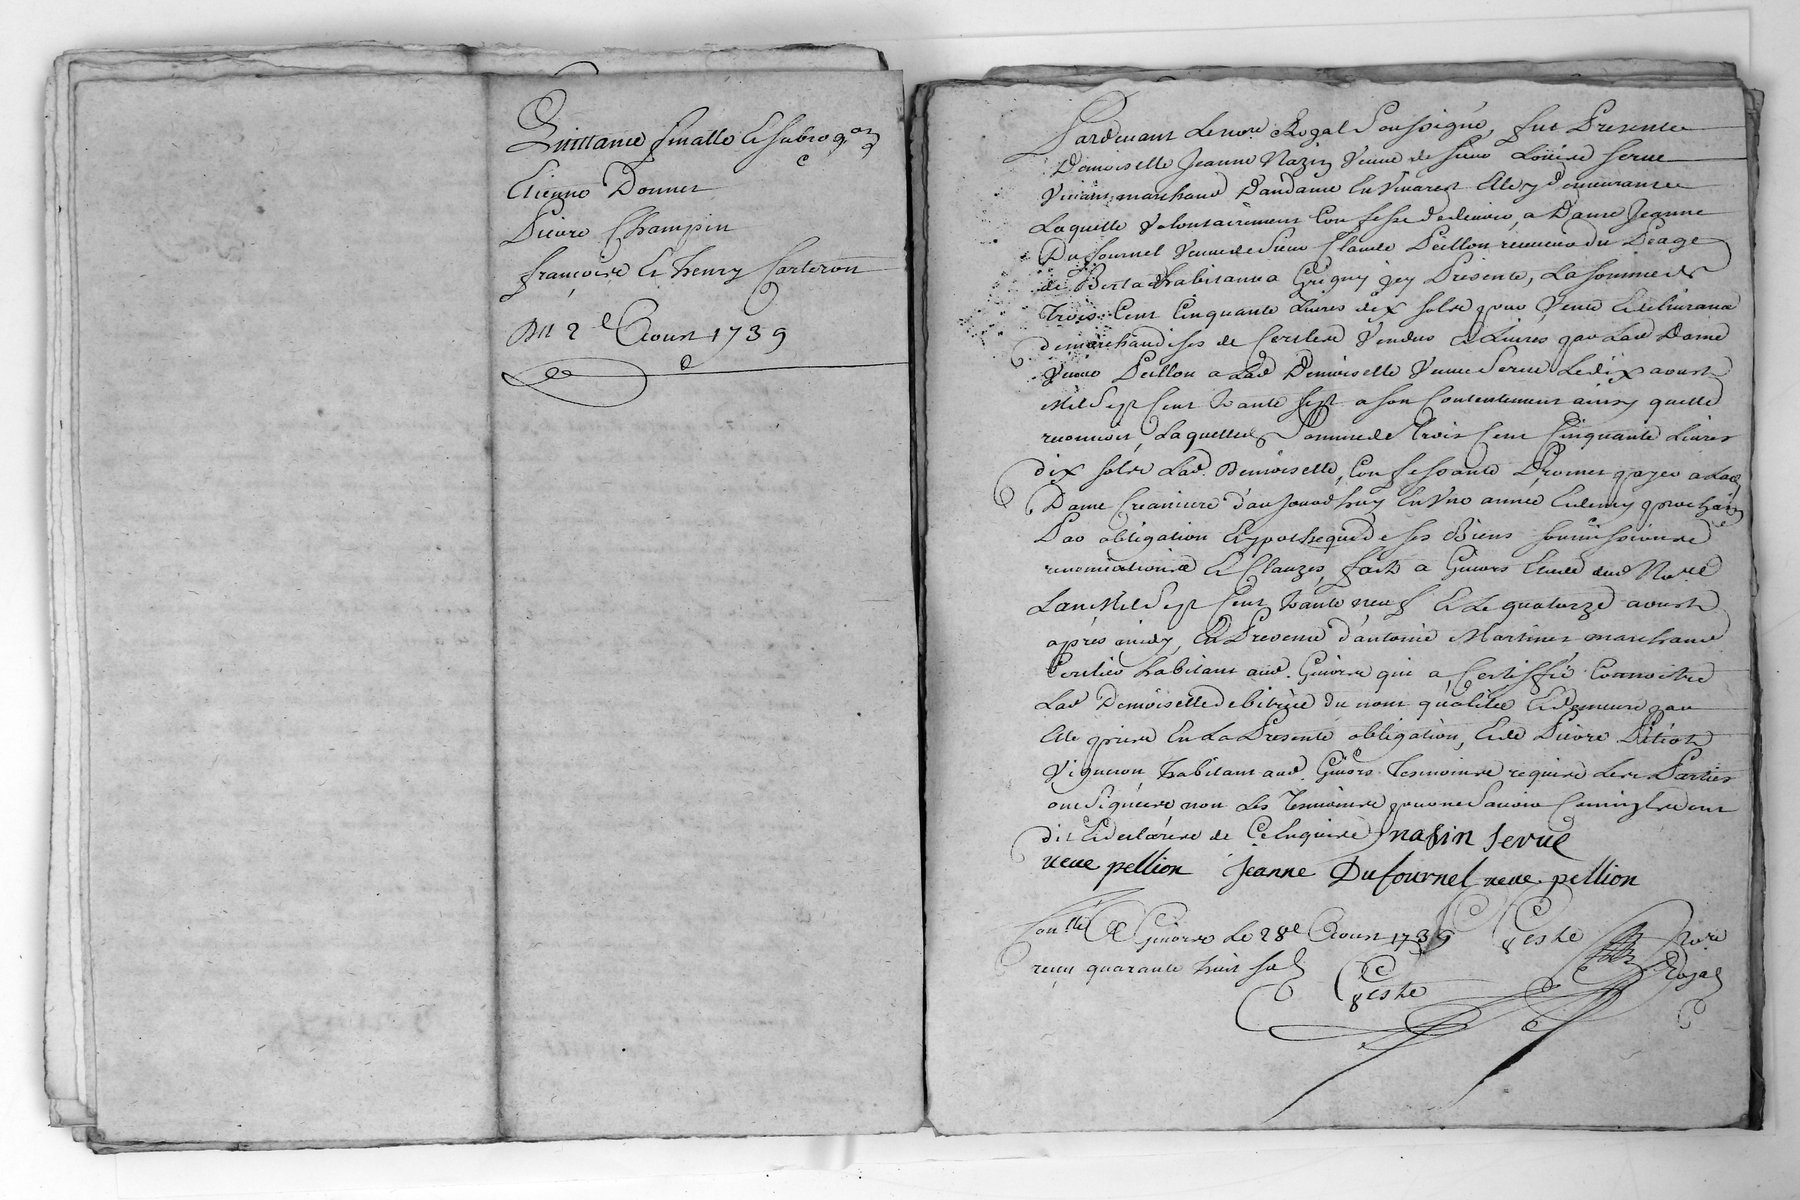 Quittance finalle et subrogaon
Etienne Donnet
Pierre Champin
françoise et henry Carteron
Du 2e Aoust 1739
Pardevant Le nore Royal Soussigné, fut Presente
Demoiselle Jeanne Nazin veuve de sieur Loüis serve
vivant marchand D'andance En vivarest Elle y demeurante
Laquelle volontairement Confesse debvoir, a Dame Jeanne
Dufournel veuve de sieur Claude Peillon receveur du Peage
de habitante a Grigny jcy Presente, La somme de
Trois Cent Cinquante Livres dix sols pour vente et delivrance
de marchandises de Cercles vendus et Livrés par Lad Dame
veuve Peillon a Lad Demoiselle veuve Serve Le dix aoust
Mil Sept Cent trante sept a son Contentement ainsy quelle
reconnoit, Laquelle Somme de Trois Cent Cinquante Livres
dix sols Lad. Demoiselle, Confessante Promet payer a Lad
Dame Creanciere d'aujourd'huy En une année Et demy prochain
Par obligation Et ypotheque de ses Biens soumissions
renonciations Et Clauzes, fait a Givors Etude dud Nore
L'an Mil Sept Cent trante neuf Et Le quatorze aoust
apres midy, En Presence d'antoine Martinet marchand
Cerclier habitant aud. Givors qui a Certiffié Connoitre
Lad Demoiselle debitrice du nom qualitée Et demeure par
Elle prise En La Presente obligation, Et de Pierre
Vigneron habitant aud. Givors Tesmoins requis Les Parties
ont Signées non Les Tesmoins pour ne Scavoir Comm'ils ont
dit Et declarés de Ce Enquis nasin serve
veuve pellion Jeanne Dufournel veuve pellion
Conllé A Givors Le 28e Aoust 1739 Geste Nore
receu quarante huit sols Geste Royal